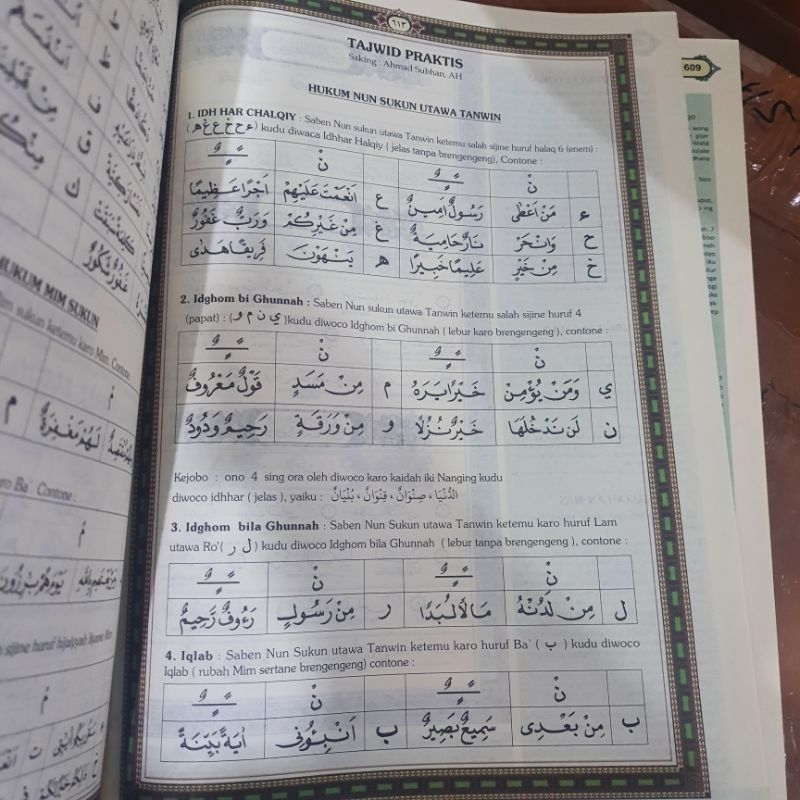 ٦١٣
TAJWID PRAKTIS
Saking : Ahmad Subhan, AH
HUKUM NUN SUKUN UTAWA TANWIN
1. IDH HAR CHALQIY : Saben Nun sukun utawa Tanwin ketemu salah sijine huruf halaq 6 (enem) :
(ء ح خ ع غ هـ) kudu diwaca Idhhar Halqiy ( jelas tanpa brengengeng), Contone :
نْ ـًـٍـٌ نْ ـًـٍـٌ
ء مَنْ اَعْطٰى رَسُوْلٌ اَمِيْنٌ ع اَنْعَمْتَ عَلَيْهِمْ اَجْرًا عَظِيْمًا
ح وَانْحَرْ نَارٌ حَامِيَةٌ غ مِنْ غَيْرِكُمْ وَرَبٌّ غَفُوْرٌ
خ مِنْ خَيْرٍ عَلِيْمًا خَبِيْرًا هـ يَنْهَوْنَ فَرِيْقًا هَدٰى
2. Idghom bi Ghunnah : Saben Nun sukun utawa Tanwin ketemu salah sijine huruf 4
(papat) : ( ي ن م و )kudu diwoco Idghom bi Ghunnah ( lebur karo brengengeng ), contone :
نْ ـًـٍـٌ نْ ـًـٍـٌ
ي وَمَنْ يُؤْمِنْ خَيْرًا يَرَهُ م مِنْ مَسَدٍ قَوْلٌ مَعْرُوْفٌ
ن لَنْ نَدْخُلَهَا خَيْرٌ نُزُلًا و مِنْ وَرَقَةٍ رَحِيْمٌ وَدُوْدٌ
Kejobo : ono 4 sing ora oleh diwoco karo kaidah iki Nanging kudu
diwoco idhhar ( jelas ), yaiku : الدُّنْيَا ، صِنْوَانٌ ، قِنْوَانٌ ، بُنْيَانٌ
3. Idghom bila Ghunnah : Saben Nun Sukun utawa Tanwin ketemu karo huruf Lam
utawa Ro'( ل ر ) kudu diwoco Idghom bila Ghunnah ( lebur tanpa brengengeng ), contone :
نْ ـًـٍـٌ نْ ـًـٍـٌ
ل مِنْ لَدُنْهُ مَالًا لُبَدًا ر مِنْ رَسُوْلٍ رَءُوْفٌ رَحِيْمٌ
4. Iqlab : Saben Nun Sukun utawa Tanwin ketemu karo huruf Ba` ( ب ) kudu diwoco
Iqlab ( rubah Mim sertane brengengeng) contone :
نْ ـًـٍـٌ نْ ـًـٍـٌ
ب مِنْ بَعْدِى سَمِيْعٌ بَصِيْرٌ ب اَنْبِئُوْنِى اٰيَةً بَيِّنَةً
HUKUM MIM SUKUN
sukun ketemu karo Mim. Contone
karo Ba` Contone :
sijine huruf hijaiyah
609